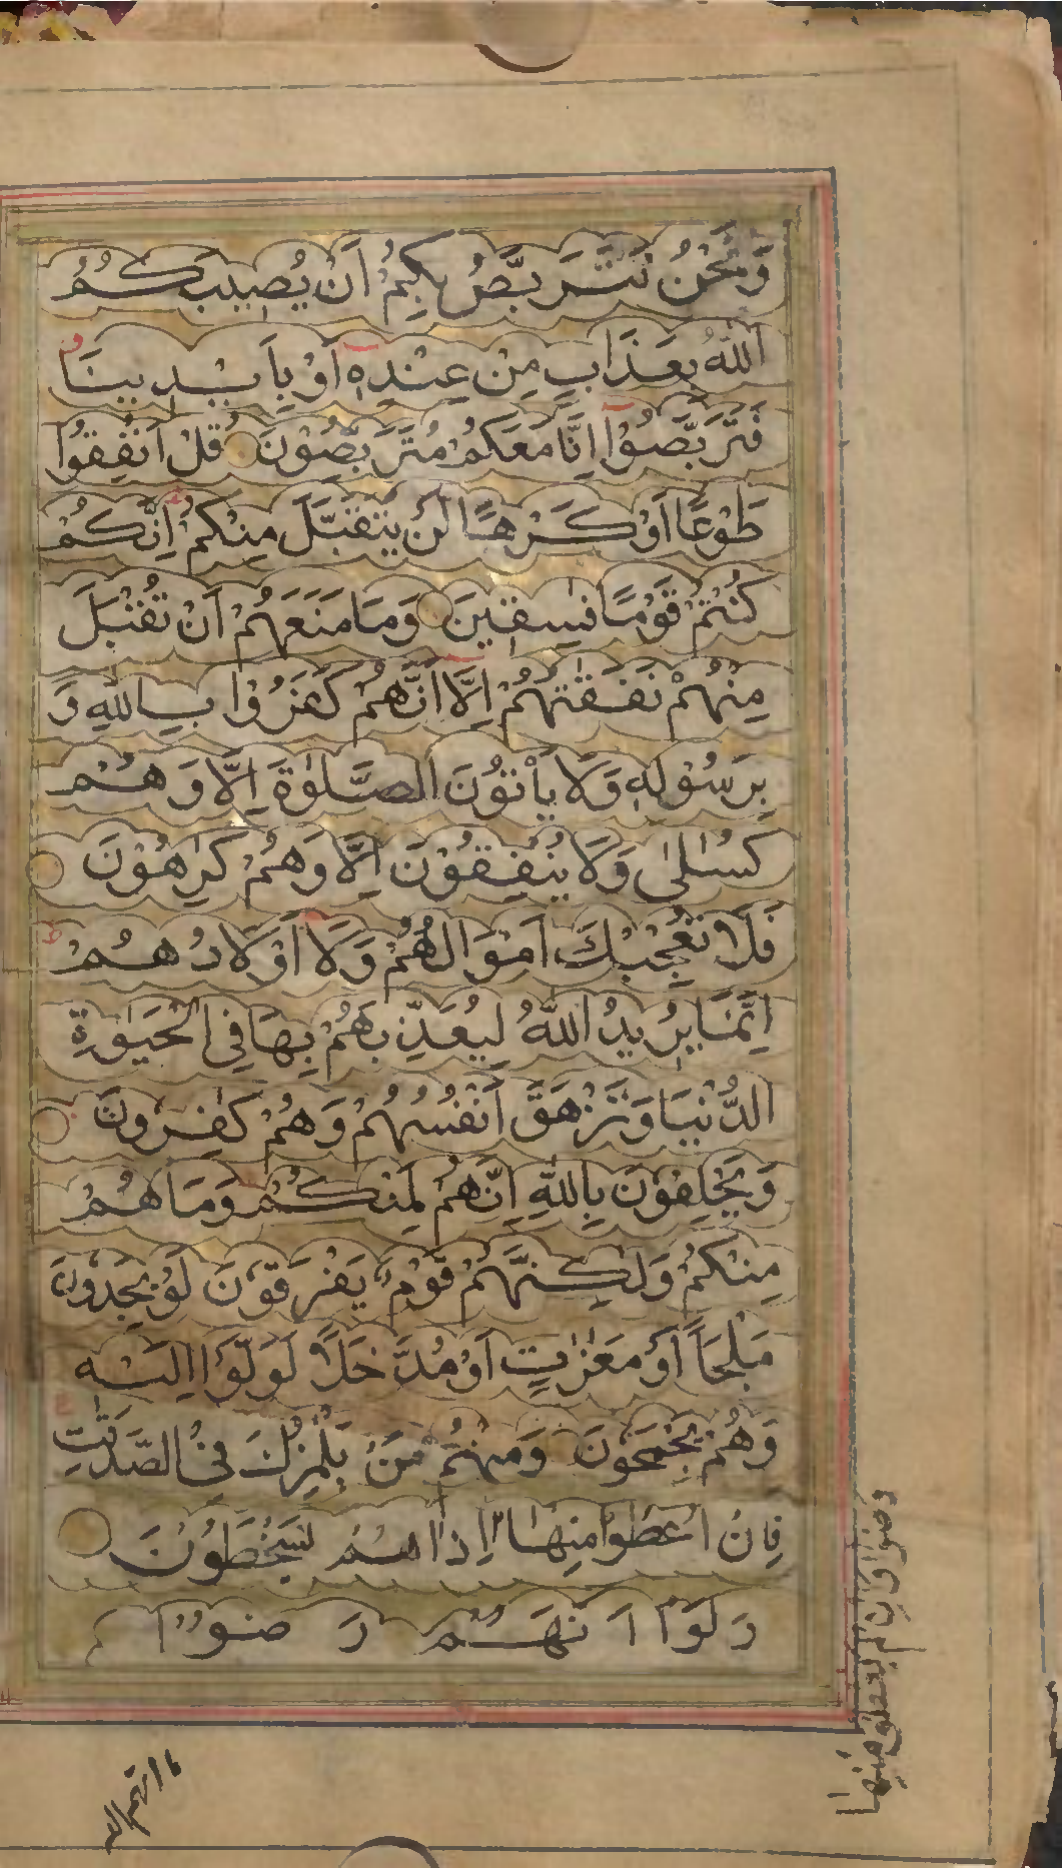 وَنَحْنُ نَتَرَبَّصُ بِكُمْ اَنْ يُصِيْبَكُمُ
اللّٰهُ بِعَذَابٍ مِنْ عِنْدِهٖ اَوْ بِاَيْدِيْنَا
فَتَرَبَّصُوْا اِنَّا مَعَكُمْ مُتَرَبِّصُوْنَ قُلْ اَنْفِقُوْا
طَوْعًا اَوْ كَرْهًا لَنْ يُتَقَبَّلَ مِنْكُمْ اِنَّكُمْ
كُنْتُمْ قَوْمًا فٰسِقِيْنَ وَمَا مَنَعَهُمْ اَنْ تُقْبَلَ
مِنْهُمْ نَفَقٰتُهُمْ اِلَّا اَنَّهُمْ كَفَرُوْا بِاللّٰهِ وَ
بِرَسُوْلِهٖ وَلَا يَأْتُوْنَ الصَّلٰوةَ اِلَّا وَهُمْ
كُسَالٰى وَلَا يُنْفِقُوْنَ اِلَّا وَهُمْ كٰرِهُوْنَ
فَلَا تُعْجِبْكَ اَمْوَالُهُمْ وَلَا اَوْلَادُهُمْ
اِنَّمَا يُرِيْدُ اللّٰهُ لِيُعَذِّبَهُمْ بِهَا فِى الْحَيٰوةِ
الدُّنْيَا وَتَزْهَقَ اَنْفُسُهُمْ وَهُمْ كٰفِرُوْنَ
وَيَحْلِفُوْنَ بِاللّٰهِ اِنَّهُمْ لَمِنْكُمْ وَمَا هُمْ
مِنْكُمْ وَلٰكِنَّهُمْ قَوْمٌ يَفْرَقُوْنَ لَوْ يَجِدُوْنَ
مَلْجَاً اَوْ مَغٰرٰتٍ اَوْ مُدَّخَلًا لَوَلَّوْا اِلَيْهِ
وَهُمْ يَجْمَحُوْنَ وَمِنْهُمْ مَنْ يَلْمِزُكَ فِى الصَّدَقٰتِ
فَاِنْ اُعْطُوْا مِنْهَا اِذَا هُمْ يَسْخَطُوْنَ
وَلَوْ اَنَّهُمْ رَضُوْا
رضوا وان لم يعطوا منها
ما اتٰهم الله